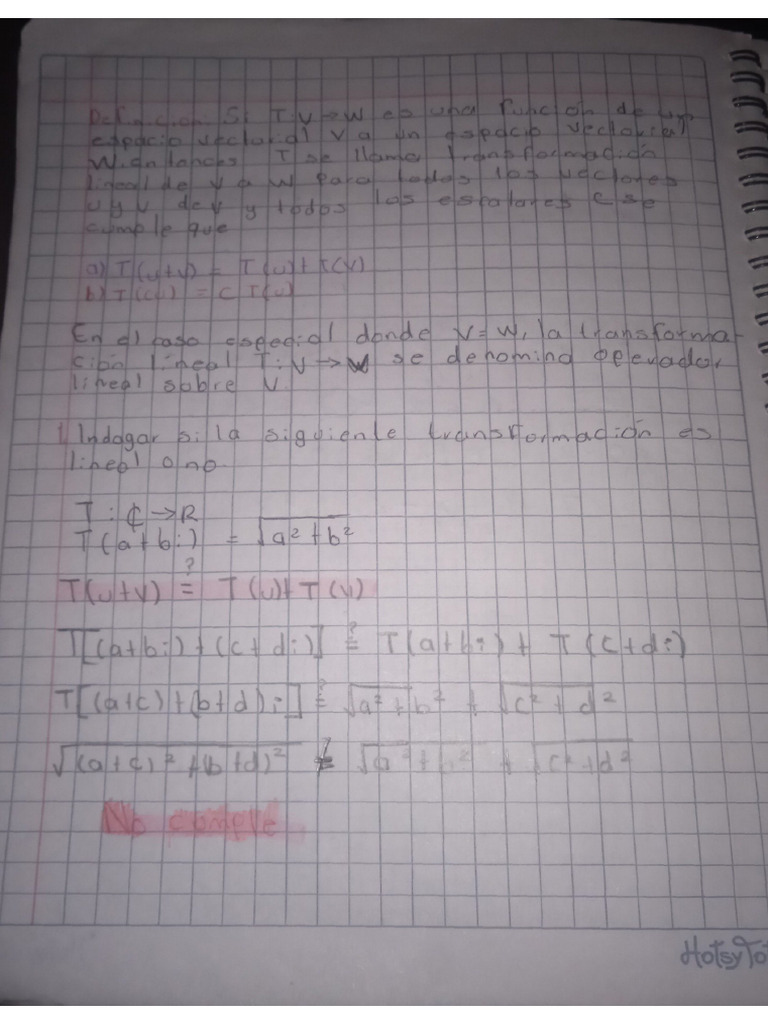 Definición: Si T:V→W es una función de un
espacio vectorial V a un espacio vectorial
W entonces T se llama transformación
lineal de V a W para todos los vectores
u y v de V y todos los escalares c se
cumple que
a) T(u+v) = T(u)+T(v)
b) T(cu) = c T(u)
En el caso especial donde V=W, la transforma
ción lineal T:V→W se denomina operador
lineal sobre V
1. Indagar si la siguiente transformación es
lineal o no
T: ℂ→R
T(a+bi) = √a²+b²
?
T(u+v) = T(u)+T(v)
T[(a+bi)+(c+di)] ≟ T(a+bi) + T(c+di)
T[(a+c)+(b+d)i] ≟ √a²+b² + √c²+d²
√(a+c)²+(b+d)² ≠ √a²+b² + √c²+d²
No cumple
HotsyTo